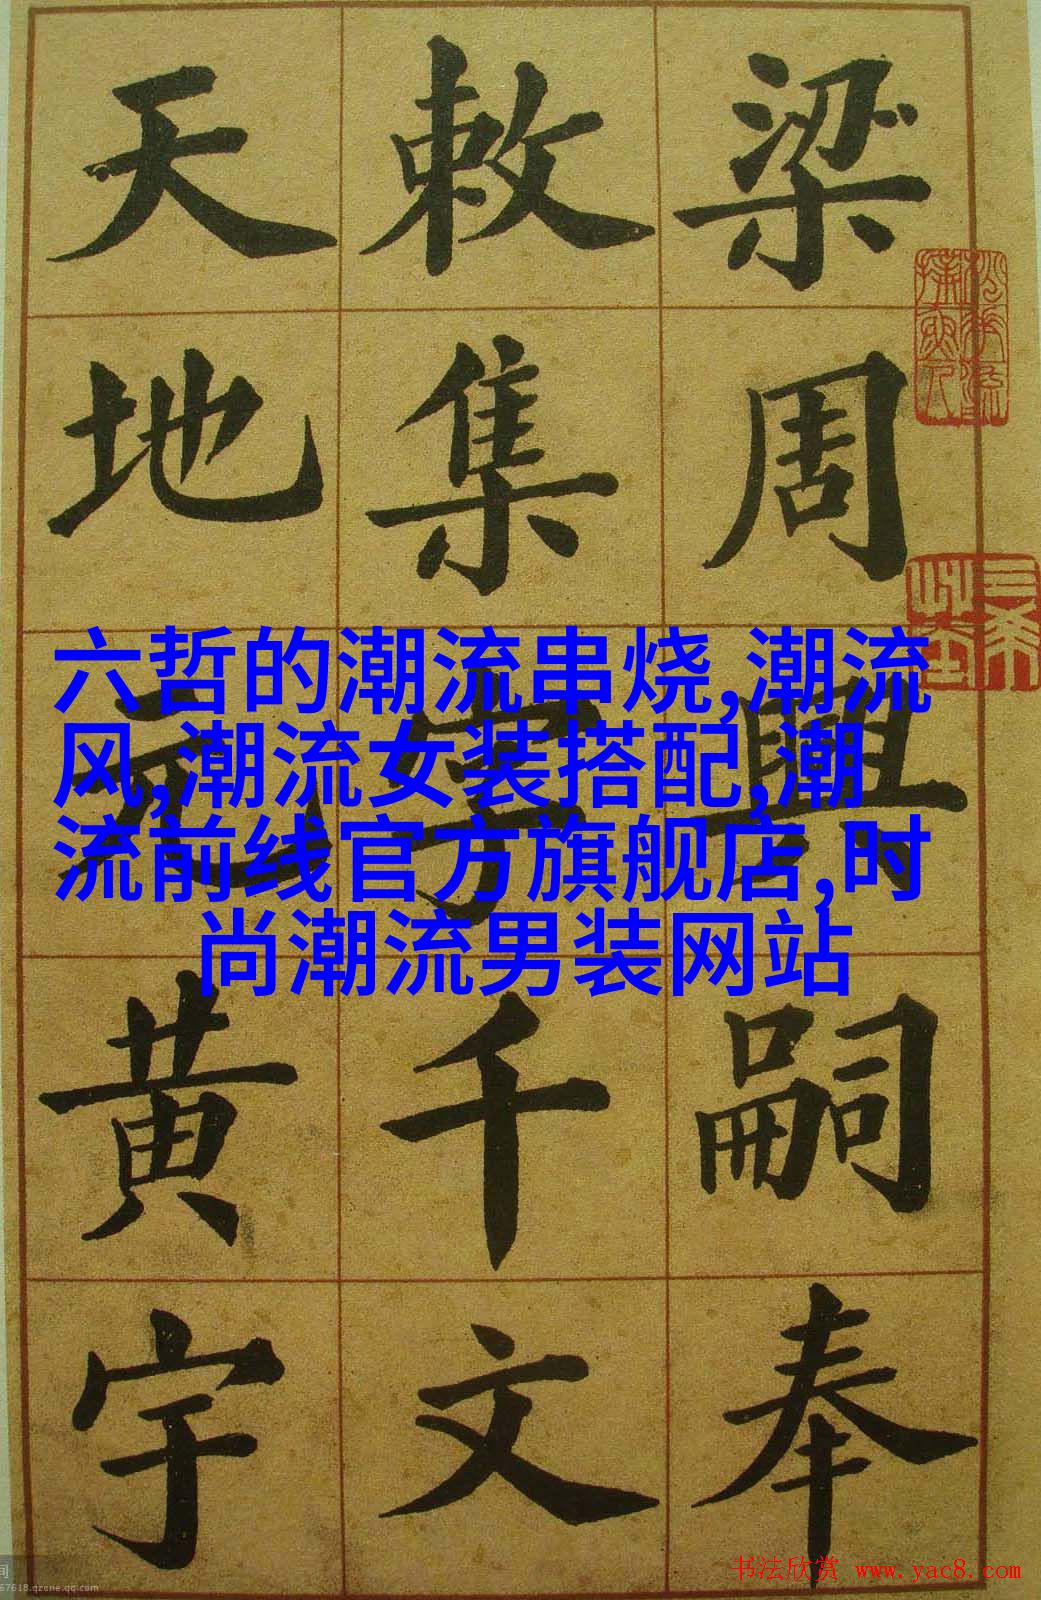 梁周興嗣奉
敕集字千文
天地元黄宇
六哲的潮流串烧,潮流
风,潮流女装搭配,潮
流前线官方旗舰店,时
尚潮流男装网站
书法欣赏 www.yac8.com
67618.qzone.qq.com